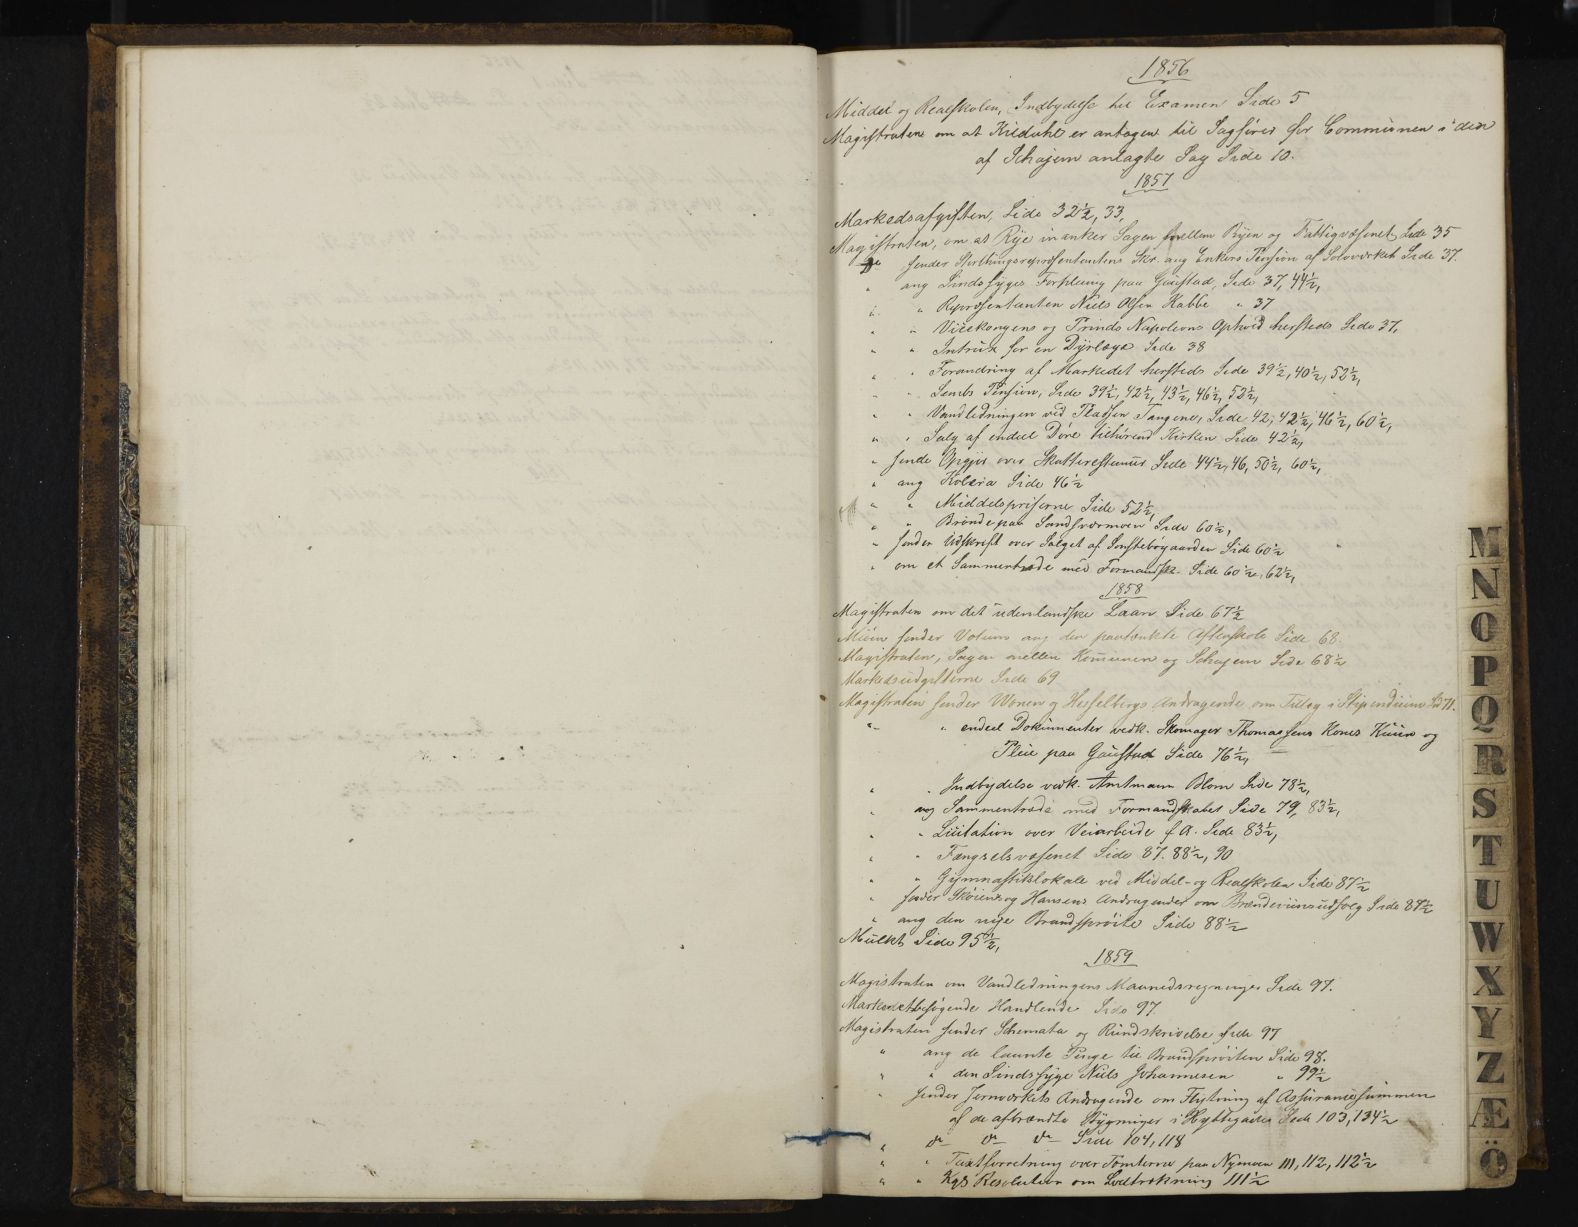 1856
Middel og Realskolen, Indbydelse til Examen Side 5
Magistraten om at Kildahl er antagen til Sagfører for Communen i den
af Schajem anlagte Sag Side 10.
1857
Markedsafgiften, Side 32½, 33,
Magistraten, om at Rye inanker Sagen mellem Byen og Fattigvæsenet Side 35
sender Storthingsrepræsentantens Skr. ang Enkers Pension af Sølvværket Side 37.
" ang Sindssyges Forpleining paa Gaustad, Side 37, 44½,
" " Repræsentanten Niels Olsen Kabbe " 37
" " Vicekongens og Prinds Napoleons Ophold hersteds Side 37,
" " Instrux for en Dyrlæge Side 38
" " Forandring af Markedet hersteds Side 39½, 40½, 52½,
" " Sembs Pension, Side 39½, 42½, 43½, 46½, 52½,
" " Vandledningen ved Pladsen Tangene, Side 42, 42½, 46½, 60½,
" " Salg af endeel Døre tilhørend Kirken Side 42½,
" sende Opgjør over Skatterestancer Side 44½, 46, 50½, 60½,
" ang Kolera Side 46½
" " Middelspriserne Side 52½,
" " Brønde paa Sandsværmoen Side 60½,
" sender Udskrift over Salget af Sonstebøygaarden Side 60½
" om et Sammentræde med Formandsk. Side 60½, 62½,
1858
Magistraten om det udenlandske Laan Side 67½
sender Votum ang den paatænkte Aftenskole Side 68.
Magistraten, Sagen mellem Kommunen og Schajem Side 68½
Markedsudgifterne Side 69
Magistraten sender Woxen og Hesselbergs Andragende om Tillæg i Stipendium Sd 71.
" " endeel Dokumenter vedk. Skomager Thomassens Kones Kuur og
Pleie paa Gaustad Side 76½,
" " Indbydelse vedk. Amtmann Blom Side 78½,
" ang Sammentræde med Formandskabet Side 79, 83½,
" " Licitation over Veiarbeide f A. Side 83½,
" " Fængselsvæsenet Side 87. 88½, 90
" " Gymnastiklokale ved Middel- og Realskolen Side 87½
" sender Skøiens og Hansens Andragender om Brændeviinsudsalg Side 87½
" ang den nye Brandsprøite Side 88½
Mulkt Side 95½,
1859
Magistraten om Vandledningens Maanedsregninger Side 97.
Markedsbesøgende Handlende Side 97.
Magistraten sender Schemata og Rundskrivelse Side 97
" ang de laante Penge til Brandsprøiten Side 98.
" " den Sindssyge Niels Johannesen " 99½
" sender Jernværkets Andragende om Flytning af Assurancesummen
af de afbrændte Bygninger i Hyttegaden Side 103, 134½
" do do do Side 104, 118
" " Taxtforretning over Tomterne paa Nymoen 111, 112, 112½
" " Kgs Resolution om Lodtrækning 111½
M
N
O
P
Q
R
S
T
U
W
X
Y
Z
Æ
Ö